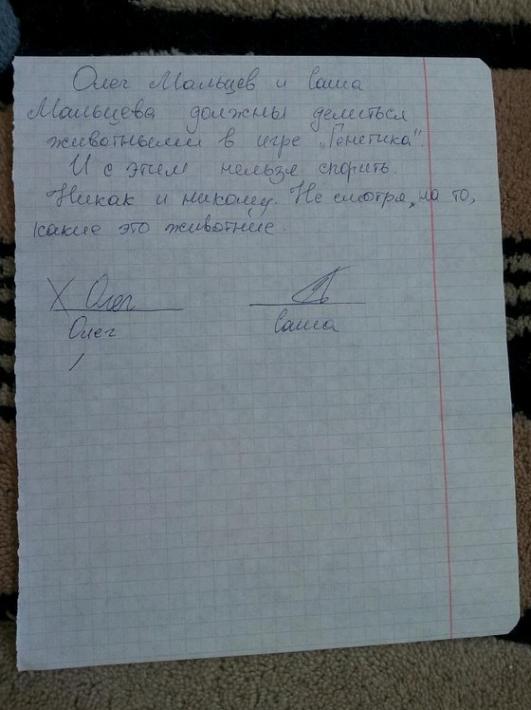 Олег Мальцев и Саша
Мальцева должны делиться
животными в игре „Генетика".
И с этим нельзя спорить.
Никак и никому. Не смотря, на то,
какие это животные.
Х Олег
Олег
Саша